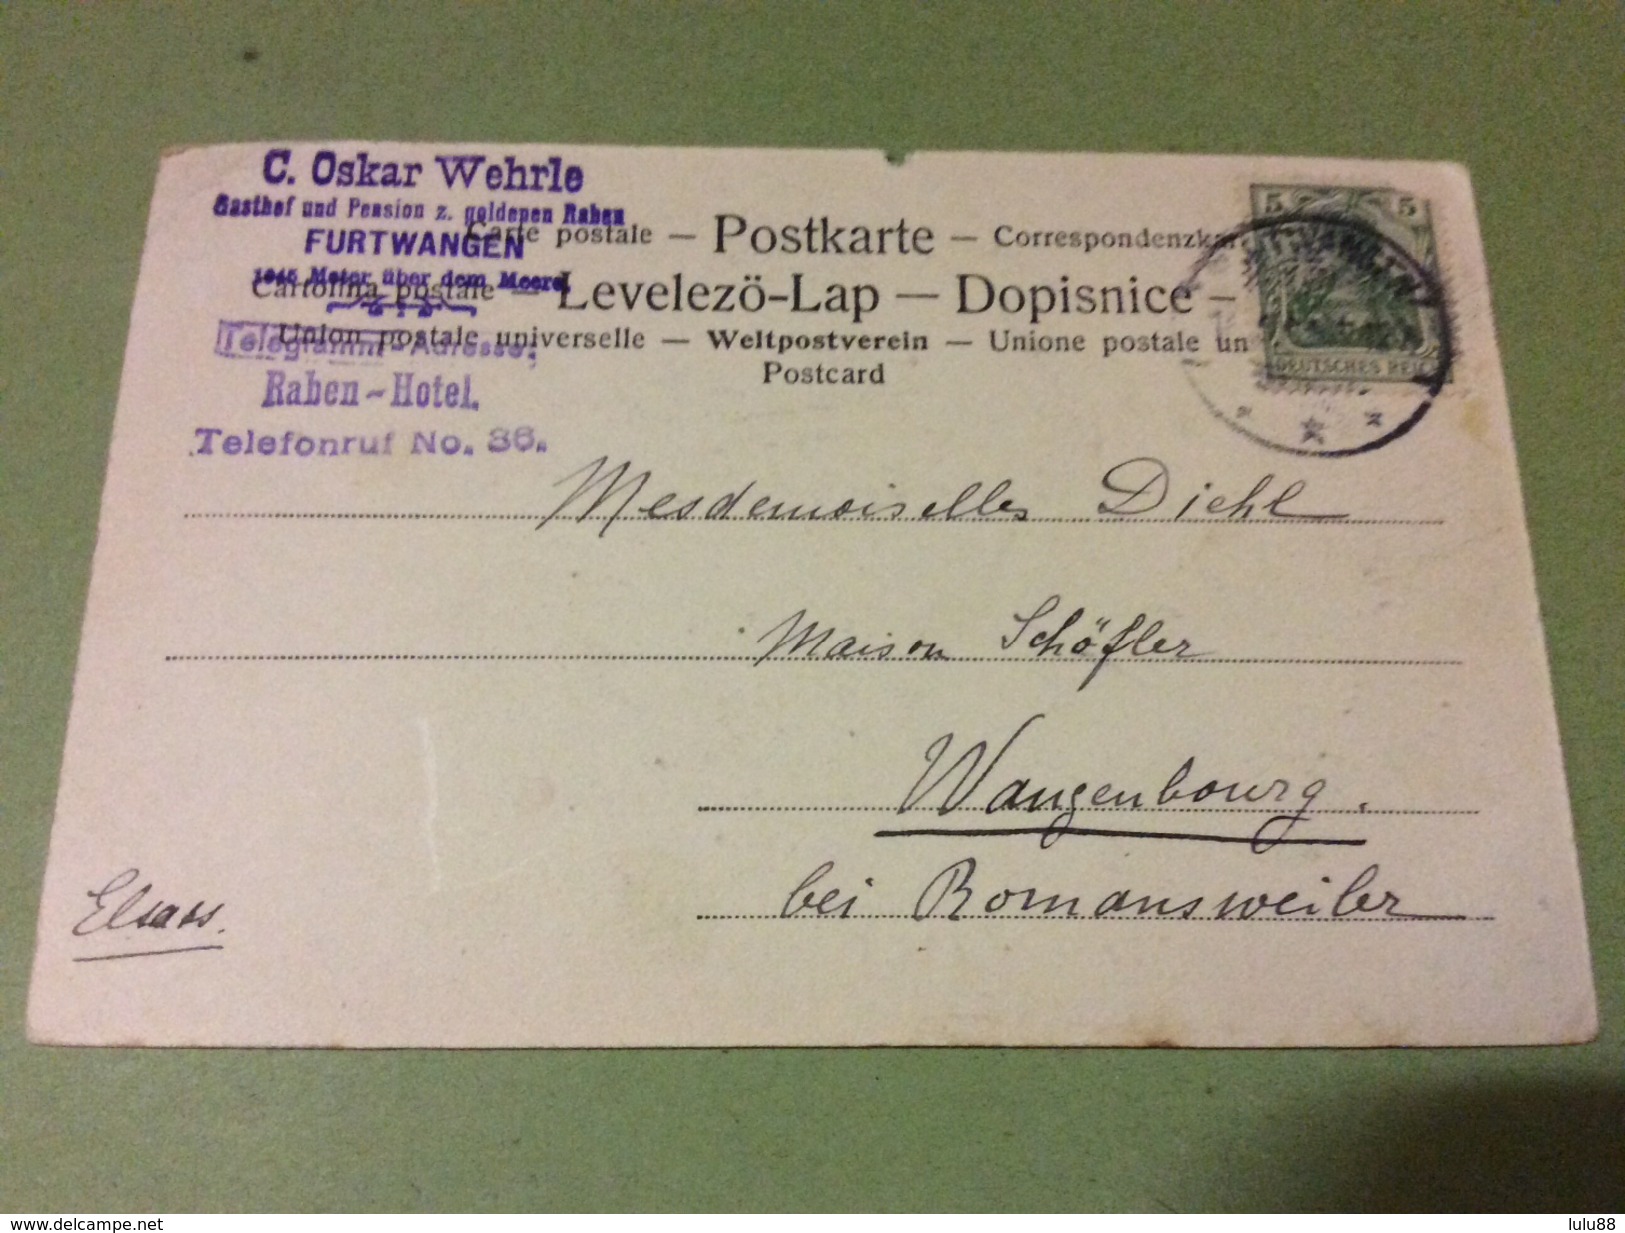 C. Oskar Wehrle
Gasthof und Pension z. goldenen Raben
FURTWANGEN
Meter über dem Meere
Telegramm-Adresse:
Raben-Hotel.
Telefonruf No. 36.
Carte postale — Postkarte — Correspondenzkar
Cartolina postale — Levelező-Lap — Dopisnice —
Union postale universelle — Weltpostverein — Unione postale un
Postcard
5 5
DEUTSCHES REICH
Mesdemoiselles Diehl
Maison Schöfler
Wangenbourg.
bei Romansweiler
Elsass.
www.delcampe.net
lulu88